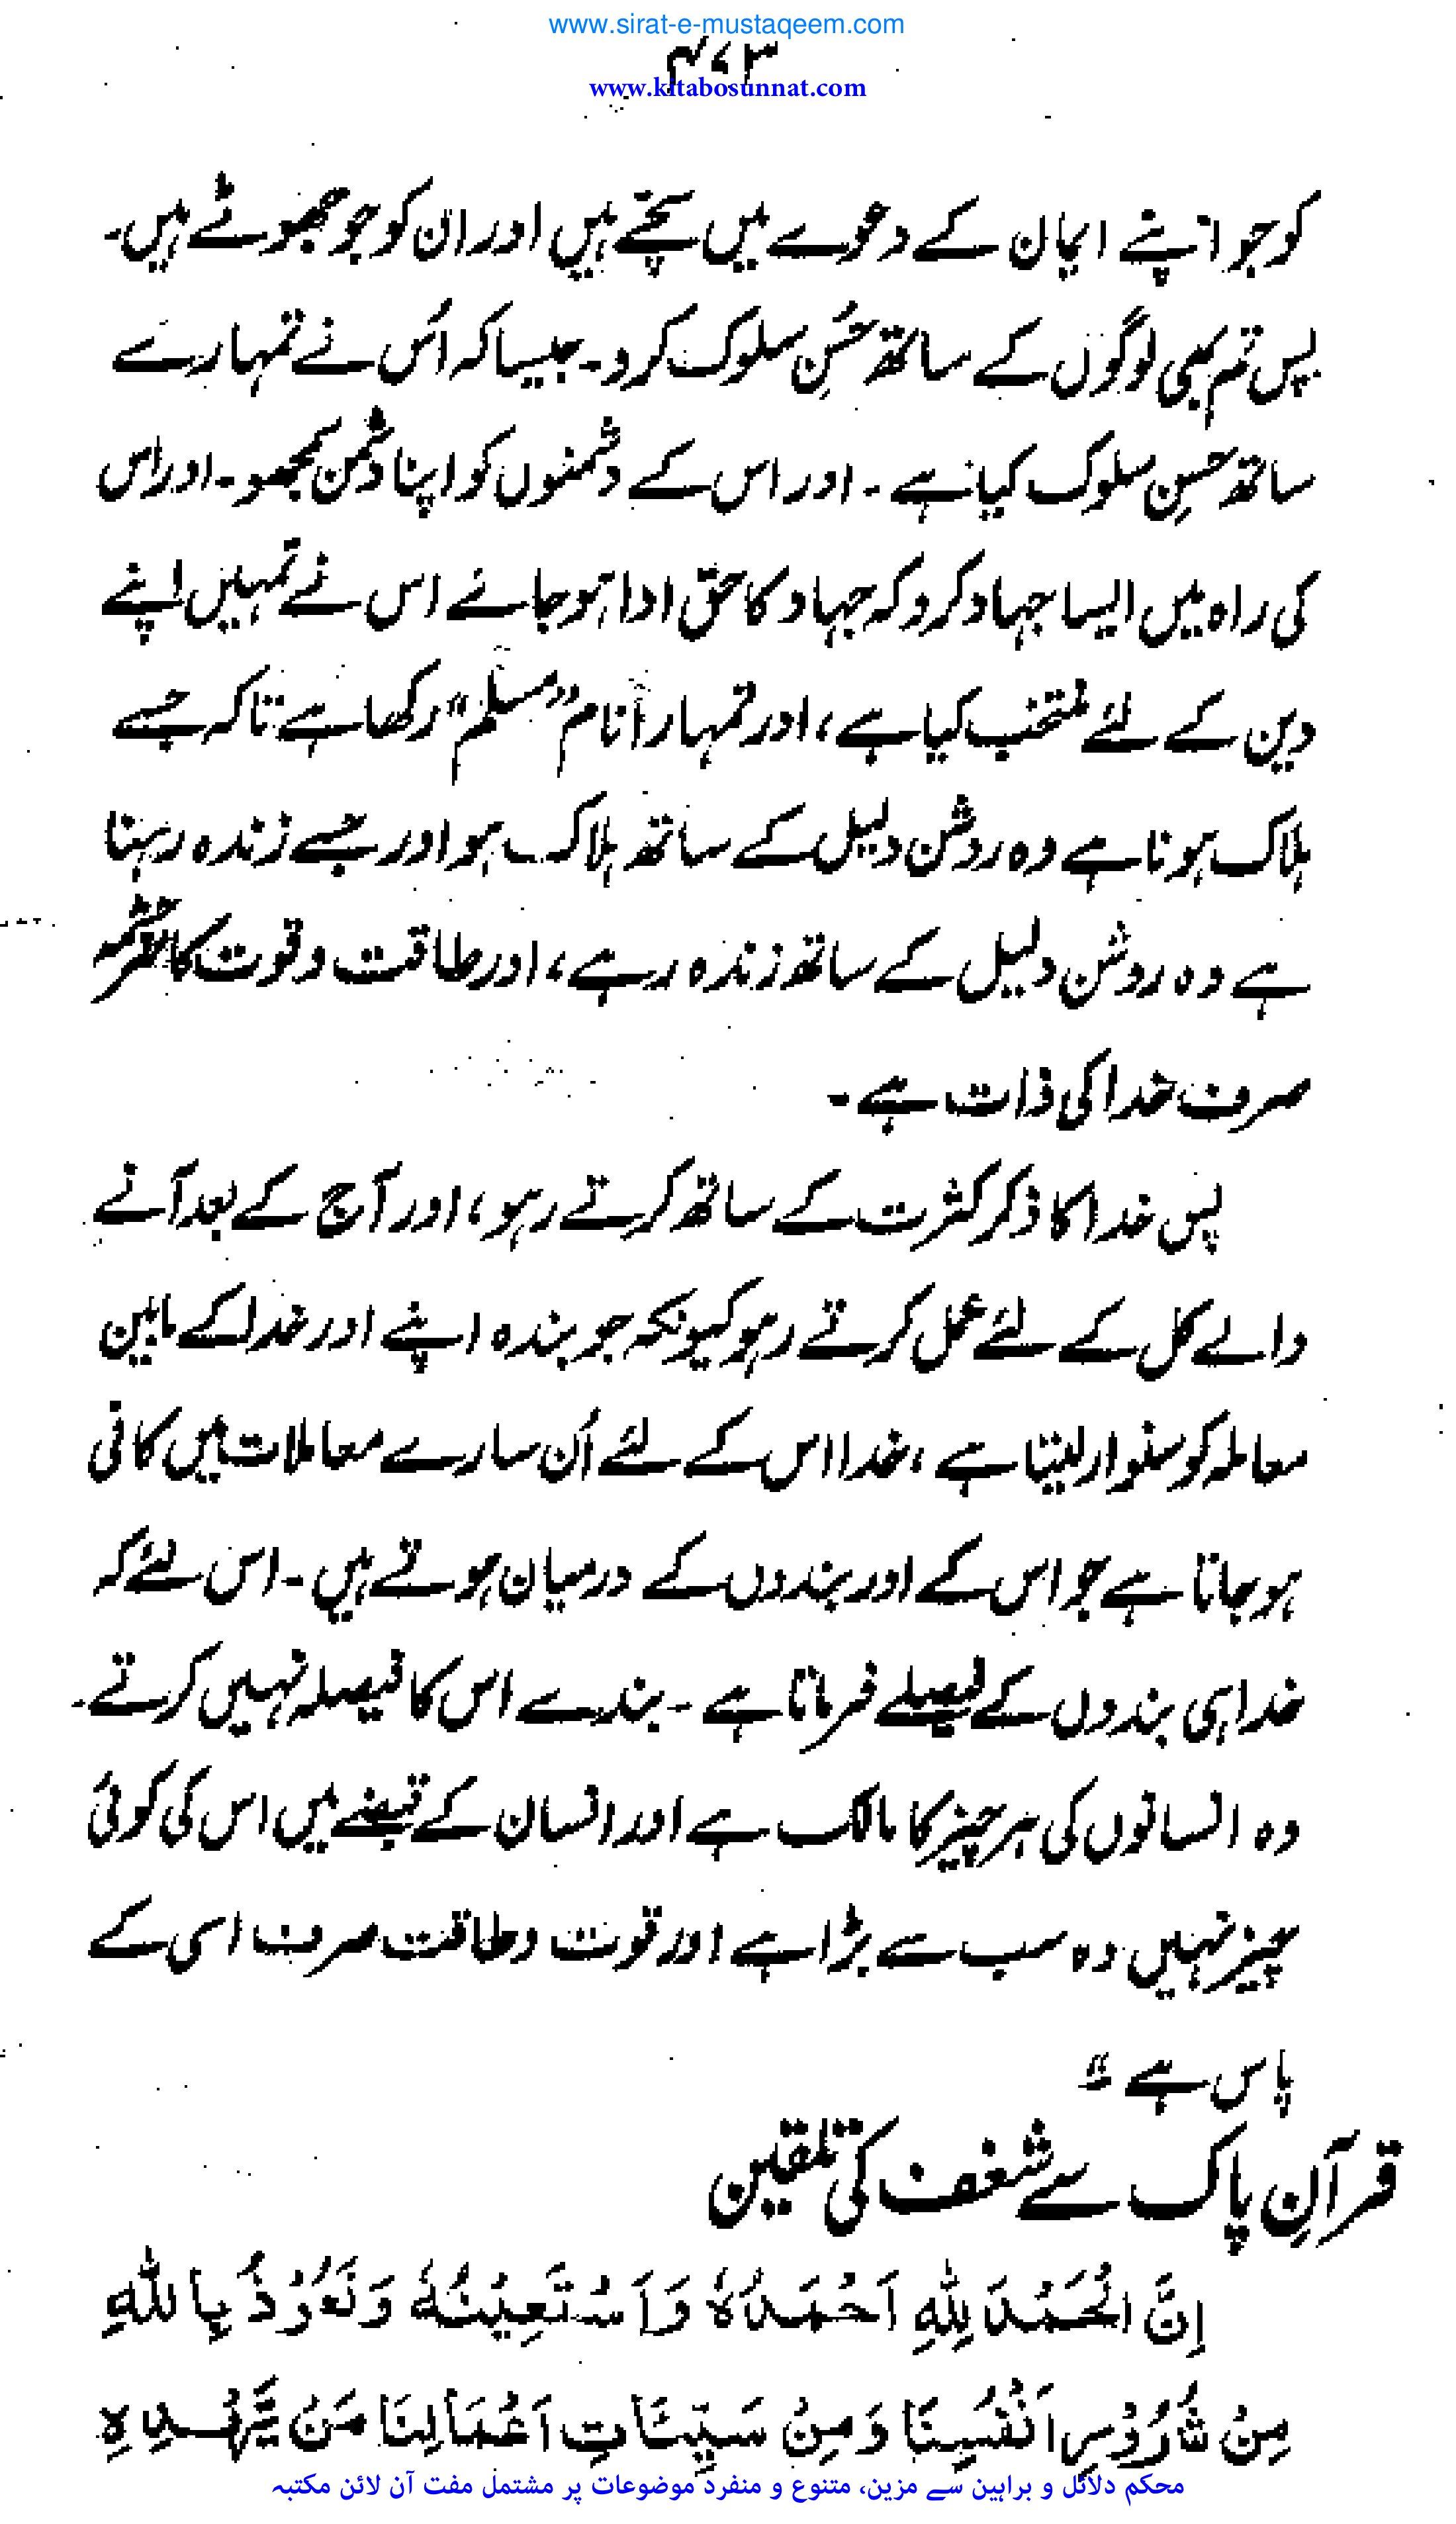 www.sirat-e-mustaqeem.com
۴۷۳
www.kitabosunnat.com
کو جو اپنے ایمان کے دعوے میں سچّے ہیں اور ان کو جو جھوٹے ہیں۔
پس تم بھی لوگوں کے ساتھ حُسنِ سلوک کرو۔ جیسا کہ اُس نے تمہارے
ساتھ حسنِ سلوک کیا ہے۔ اور اس کے دشمنوں کو اپنا دشمن سمجھو۔ اور اس
کی راہ میں ایسا جہاد کرو کہ جہاد کا حق ادا ہو جائے اس نے تمہیں اپنے
دین کے لئے منتخب کیا ہے، اور تمہارا نام "مسلم" رکھا ہے تاکہ جسے
ہلاک ہونا ہے وہ روشن دلیل کے ساتھ ہلاک ہو اور جسے زندہ رہنا
ہے وہ روشن دلیل کے ساتھ زندہ رہے، اور طاقت و قوت کا سرچشمہ
صرف خدا کی ذات ہے۔
پس خدا کا ذکر کثرت کے ساتھ کرتے رہو، اور آج کے بعد آنے
والے کل کے لئے عمل کرتے رہو کیونکہ جو بندہ اپنے اور خدا کے مابین
معاملہ کو سنوار لیتا ہے، خدا اس کے لئے اُن سارے معاملات میں کافی
ہو جاتا ہے جو اس کے اور بندوں کے درمیان ہوتے ہیں۔ اس لئے کہ
خدا ہی بندوں کے فیصلے فرماتا ہے۔ بندے اس کا فیصلہ نہیں کرتے۔
وہ انسانوں کی ہر چیز کا مالک ہے اور انسان کے قبضے میں اس کی کوئی
چیز نہیں وہ سب سے بڑا ہے اور قوت و طاقت صرف اسی کے
پاس ہے"
قرآنِ پاک سے شغف کی تلقین
اِنَّ الْحَمْدَ لِلّٰهِ اَحْمَدُہٗ وَاَسْتَعِيْنُهٗ وَنَعُوْذُ بِاللّٰهِ
مِنْ شُرُوْرِ اَنْفُسِنَا وَمِنْ سَيِّئَاتِ اَعْمَالِنَا مَنْ يَّهْدِهِ
محکم دلائل و براہین سے مزین، متنوع و منفرد موضوعات پر مشتمل مفت آن لائن مکتبہ